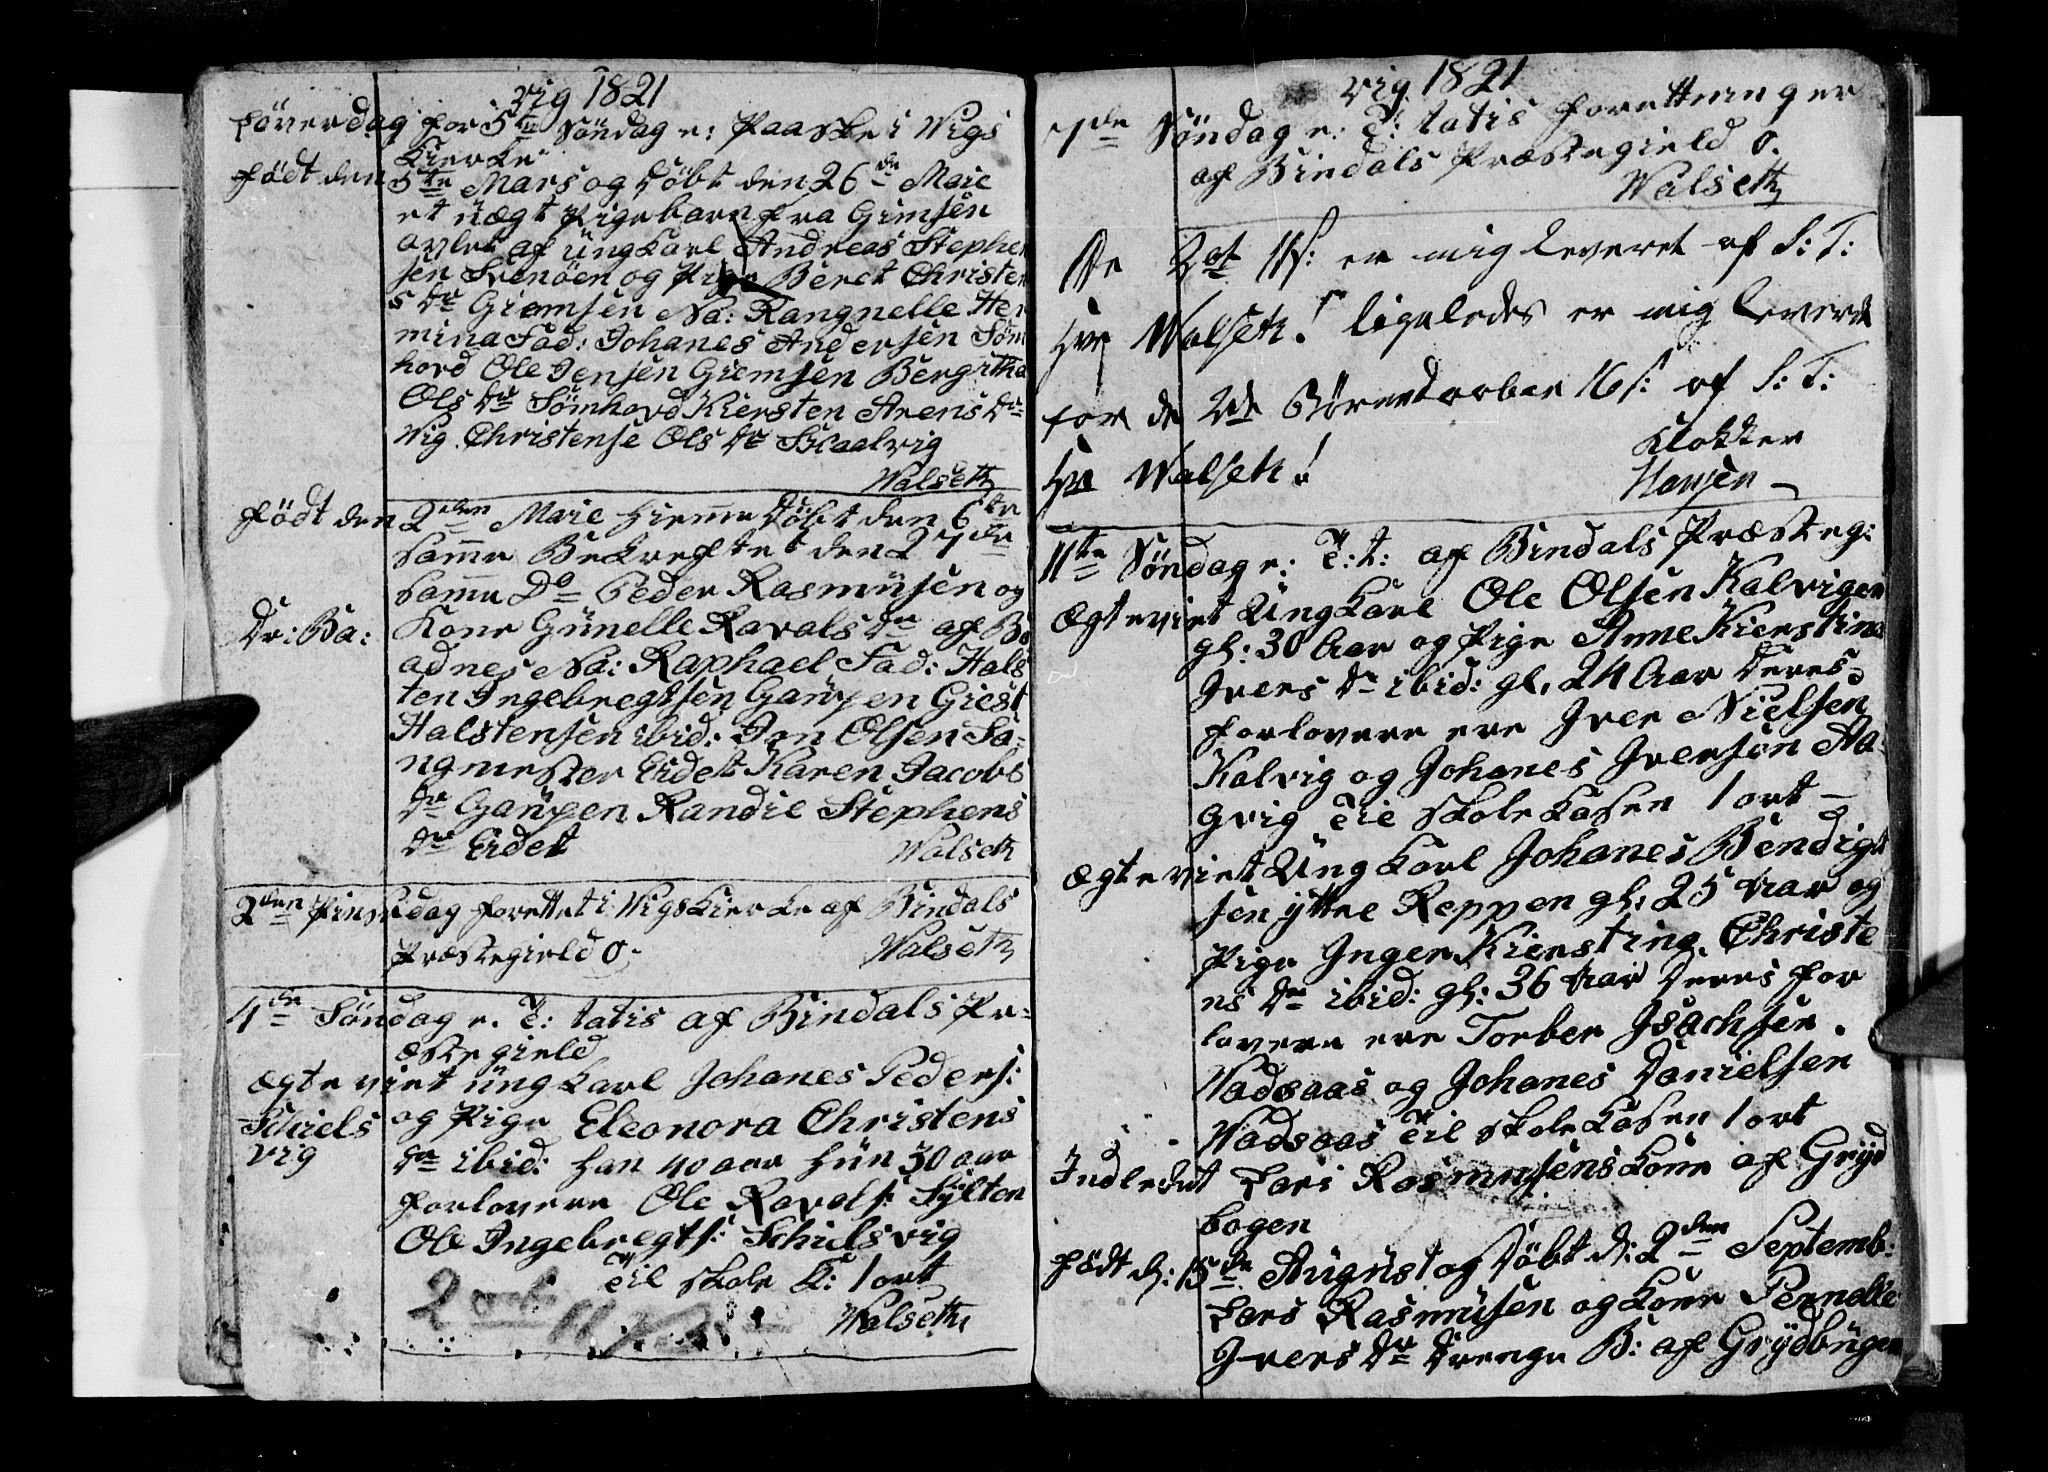 Vig 1821
Löverdag for 5te Söndag e: Paaske i Wigs
Kierke
Födt den 5te Mars og Döbt den 26de Maie
et uægt Pigebarn fra Gimsen
avlet af Ungkarl Andreas Stephen
sen Svenöen og Pige Beret Christen
s Dr Giemsen Na: Rangnelle Her
mina Fad: Johanes Andersen Söm
hovd Ole Jensen Giemsen Bergitha
Ols Dr Sömhovd Kiersten Arens Dr
Vig Christense Ols Dr Skaalvig
Walseth
Födt den 2den Maie hieme Döbt den 6te
Samme Bekreftet den 27de
Samme Do Peder Rasmusen og
Dr: Ba: Kone Gunelle Ravals Dr af Bö
adnes Na: Raphael Fad: Hals
ten Ingebregtsen Gaupen Giest
Halstensen ibid: Jon Olsen Sa-
ngmester Eidet Karen Jacobs
Dr Gaupen Randie Stephens
Dr Eidet
Walseth
2den Pinsedag forettet i Wigs Kierke af Bindals
Præstegield 0.
Walseth
4de Söndag e. T: tatis af Bindals Pr-
æstegield
Ægteviet ungkarl Johanes Peders:
Schiels og Pige Eleonora Christens
vig Dr ibid: han 40 aar hun 30 aar
forlovere Ole Ravals: Sylten
Ole Ingebregts: Schielsvig
Til Skole K: 1 ort
Walseth
Vig 1821
7de Söndag e: T: tatis forettninger
af Bindals Præstegield 0.
Walseth
2 ort er mig leveret af S: T:
Hr Walseth! ligeledes er mig leveret
for de 2de 16 s: af S: T:
Hr Walseth!
Klokker
Hansen
11te Söndag e: T: t: af Bindals Præsteg:
Ægteviet Ungkarl Ole Olsen Kalvigen
gl: 30 Aar og Pige Anne Kierstina
Ivers Dr ibid: gl. 24 Aar Deres
forlovere ere Iver Nielsen
Kalvig og Johanes Iversön Aa-
gvig Til Skole Kasen 1 ort
Ægteviet Ungkarl Johanes Bendigt
sen yttre Reppen gl: 25 Aar og
Pige Inger Kiersting Christe
ns Dr ibid: gl: 36 Aar Deres for
lovere ere Torber Isachsen
Vadsaas og Johanes Danielsen
Vadsaas Til Skole Kasen 1 ort
Indledet Lars Rasmusens Kone af Gryd
bogen
Födt d: 15de August og Döbt d: 2den Septemb:
Lars Rasmusen og Kone Pernelle
Ivers Dr Drenge B: af Grydbugen